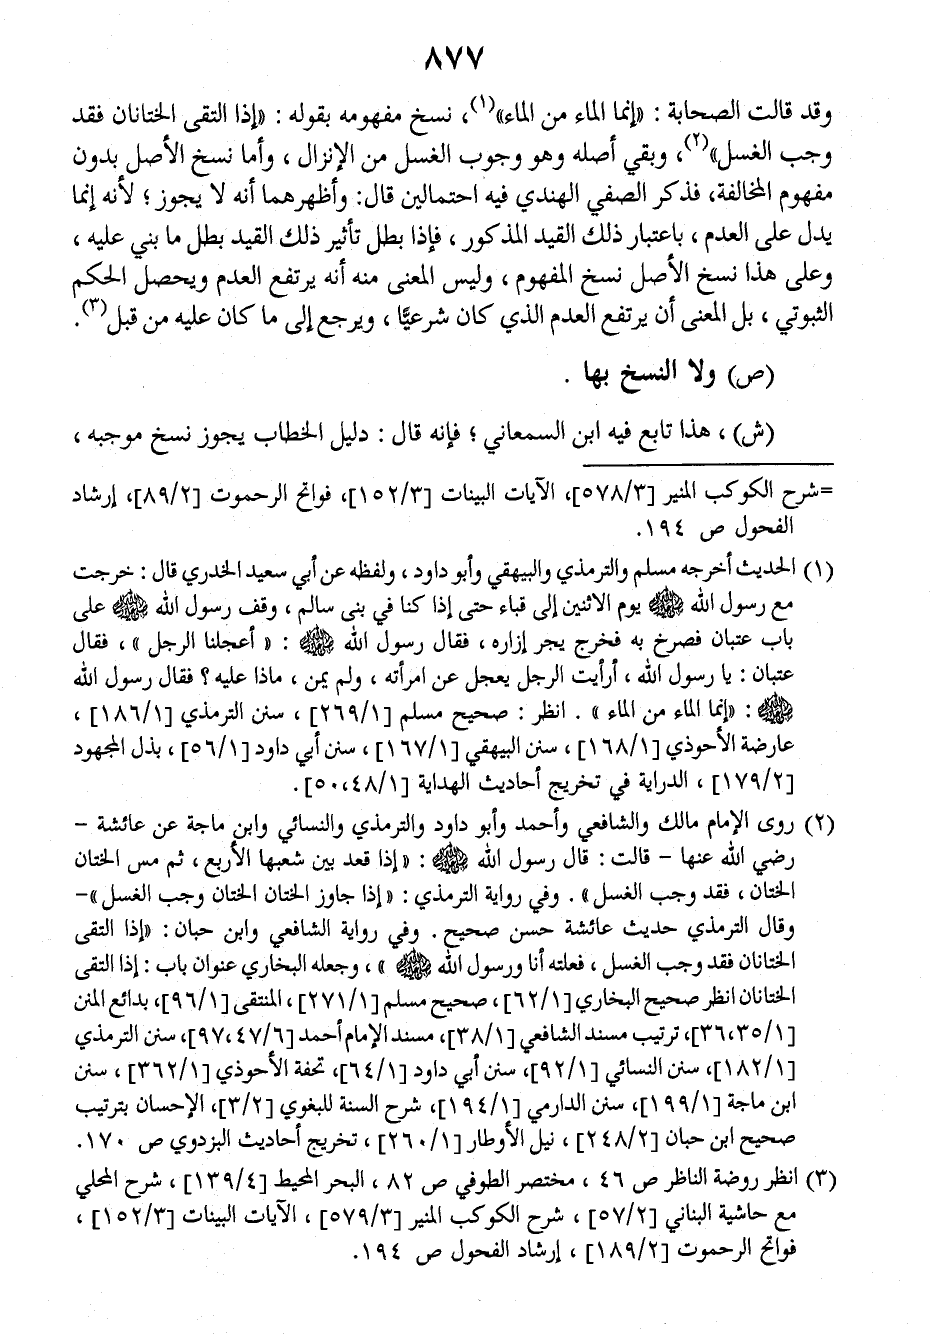 ٨٧٧
وقد قالت الصحابة : «إنما الماء من الماء»(١)، نسخ مفهومه بقوله : «إذا التقى الختانان فقد
وجب الغسل»(٢)، وبقي أصله وهو وجوب الغسل من الإنزال ، وأما نسخ الأصل بدون
مفهوم المخالفة، فذكر الصفي الهندي فيه احتمالين قال: وأظهرهما أنه لا يجوز ؛ لأنه إنما
يدل على العدم ، باعتبار ذلك القيد المذكور ، فإذا بطل تأثير ذلك القيد بطل ما بني عليه ،
وعلى هذا نسخ الأصل نسخ المفهوم ، وليس المعنى منه أنه يرتفع العدم ويحصل الحكم
الثبوتي ، بل المعنى أن يرتفع العدم الذي كان شرعيًّا ، ويرجع إلى ما كان عليه من قبل(٣).
(ص) ولا النسخ بها .
(ش) ، هذا تابع فيه ابن السمعاني ؛ فإنه قال : دليل الخطاب يجوز نسخ موجبه ،
=شرح الكوكب المنير [٥٧٨/٣]، الآيات البينات [١٥٢/٣]، فواتح الرحموت [٨٩/٢]، إرشاد
الفحول ص ١٩٤.
(١) الحديث أخرجه مسلم والترمذي والبيهقي وأبو داود ، ولفظه عن أبي سعيد الخدري قال : خرجت
مع رسول الله ﷺ يوم الاثنين إلى قباء حتى إذا كنا في بنى سالم ، وقف رسول الله ﷺ على
باب عتبان فصرخ به فخرج يجر إزاره ، فقال رسول الله ﷺ : « أعجلنا الرجل » ، فقال
عتبان : يا رسول الله ، أرأيت الرجل يعجل عن امرأته ، ولم يمن ، ماذا عليه ؟ فقال رسول الله
ﷺ : «إنما الماء من الماء » . انظر : صحيح مسلم [٢٦٩/١] ، سنن الترمذي [١٨٦/١] ،
عارضة الأحوذي [١٦٨/١] ، سنن البيهقي [١٦٧/١] ، سنن أبي داود [٥٦/١] ، بذل المجهود
[١٧٩/٢] ، الدراية في تخريج أحاديث الهداية [٥٠،٤٨/١].
(٢) روى الإمام مالك والشافعي وأحمد وأبو داود والترمذي والنسائي وابن ماجة عن عائشة -
رضي الله عنها - قالت : قال رسول الله ﷺ : «إذا قعد بين شعبها الأربع ، ثم مس الختان
الختان ، فقد وجب الغسل» . وفي رواية الترمذي : «إذا جاوز الختان الختان وجب الغسل»-
وقال الترمذي حديث عائشة حسن صحيح . وفي رواية الشافعي وابن حبان: «إذا التقى
الختانان فقد وجب الغسل ، فعلته أنا ورسول الله ﷺ » ، وجعله البخاري عنوان باب : إذا التقى
الختانان انظر صحيح البخاري [٦٢/١] ، صحيح مسلم [٢٧١/١] ، المنتقى [٩٦/١]، بدائع المنن
[٣٦،٣٥/١]، ترتيب مسند الشافعي [٣٨/١]، مسند الإمام أحمد [٩٧،٤٧/٦]، سنن الترمذي
[١٨٢/١]، سنن النسائي [٩٢/١]، سنن أبي داود [٦٤/١]، تحفة الأحوذي [٣٦٢/١] ، سنن
ابن ماجة [١٩٩/١]، سنن الدارمي [١٩٤/١]، شرح السنة للبغوي [٣/٢]، الإحسان بترتيب
صحيح ابن حبان [٢٤٨/٢] ، نيل الأوطار [٢٦٠/١] ، تخريج أحاديث البزدوي ص ١٧٠.
(٣) انظر روضة الناظر ص ٤٦ ، مختصر الطوفي ص ٨٢ ، البحر المحيط [١٣٩/٤] ، شرح المحلي
مع حاشية البناني [٥٧/٢] ، شرح الكوكب المنير [٥٧٩/٣] ، الآيات البينات [١٥٢/٣] ،
فواتح الرحموت [١٨٩/٢] ، إرشاد الفحول ص ١٩٤.